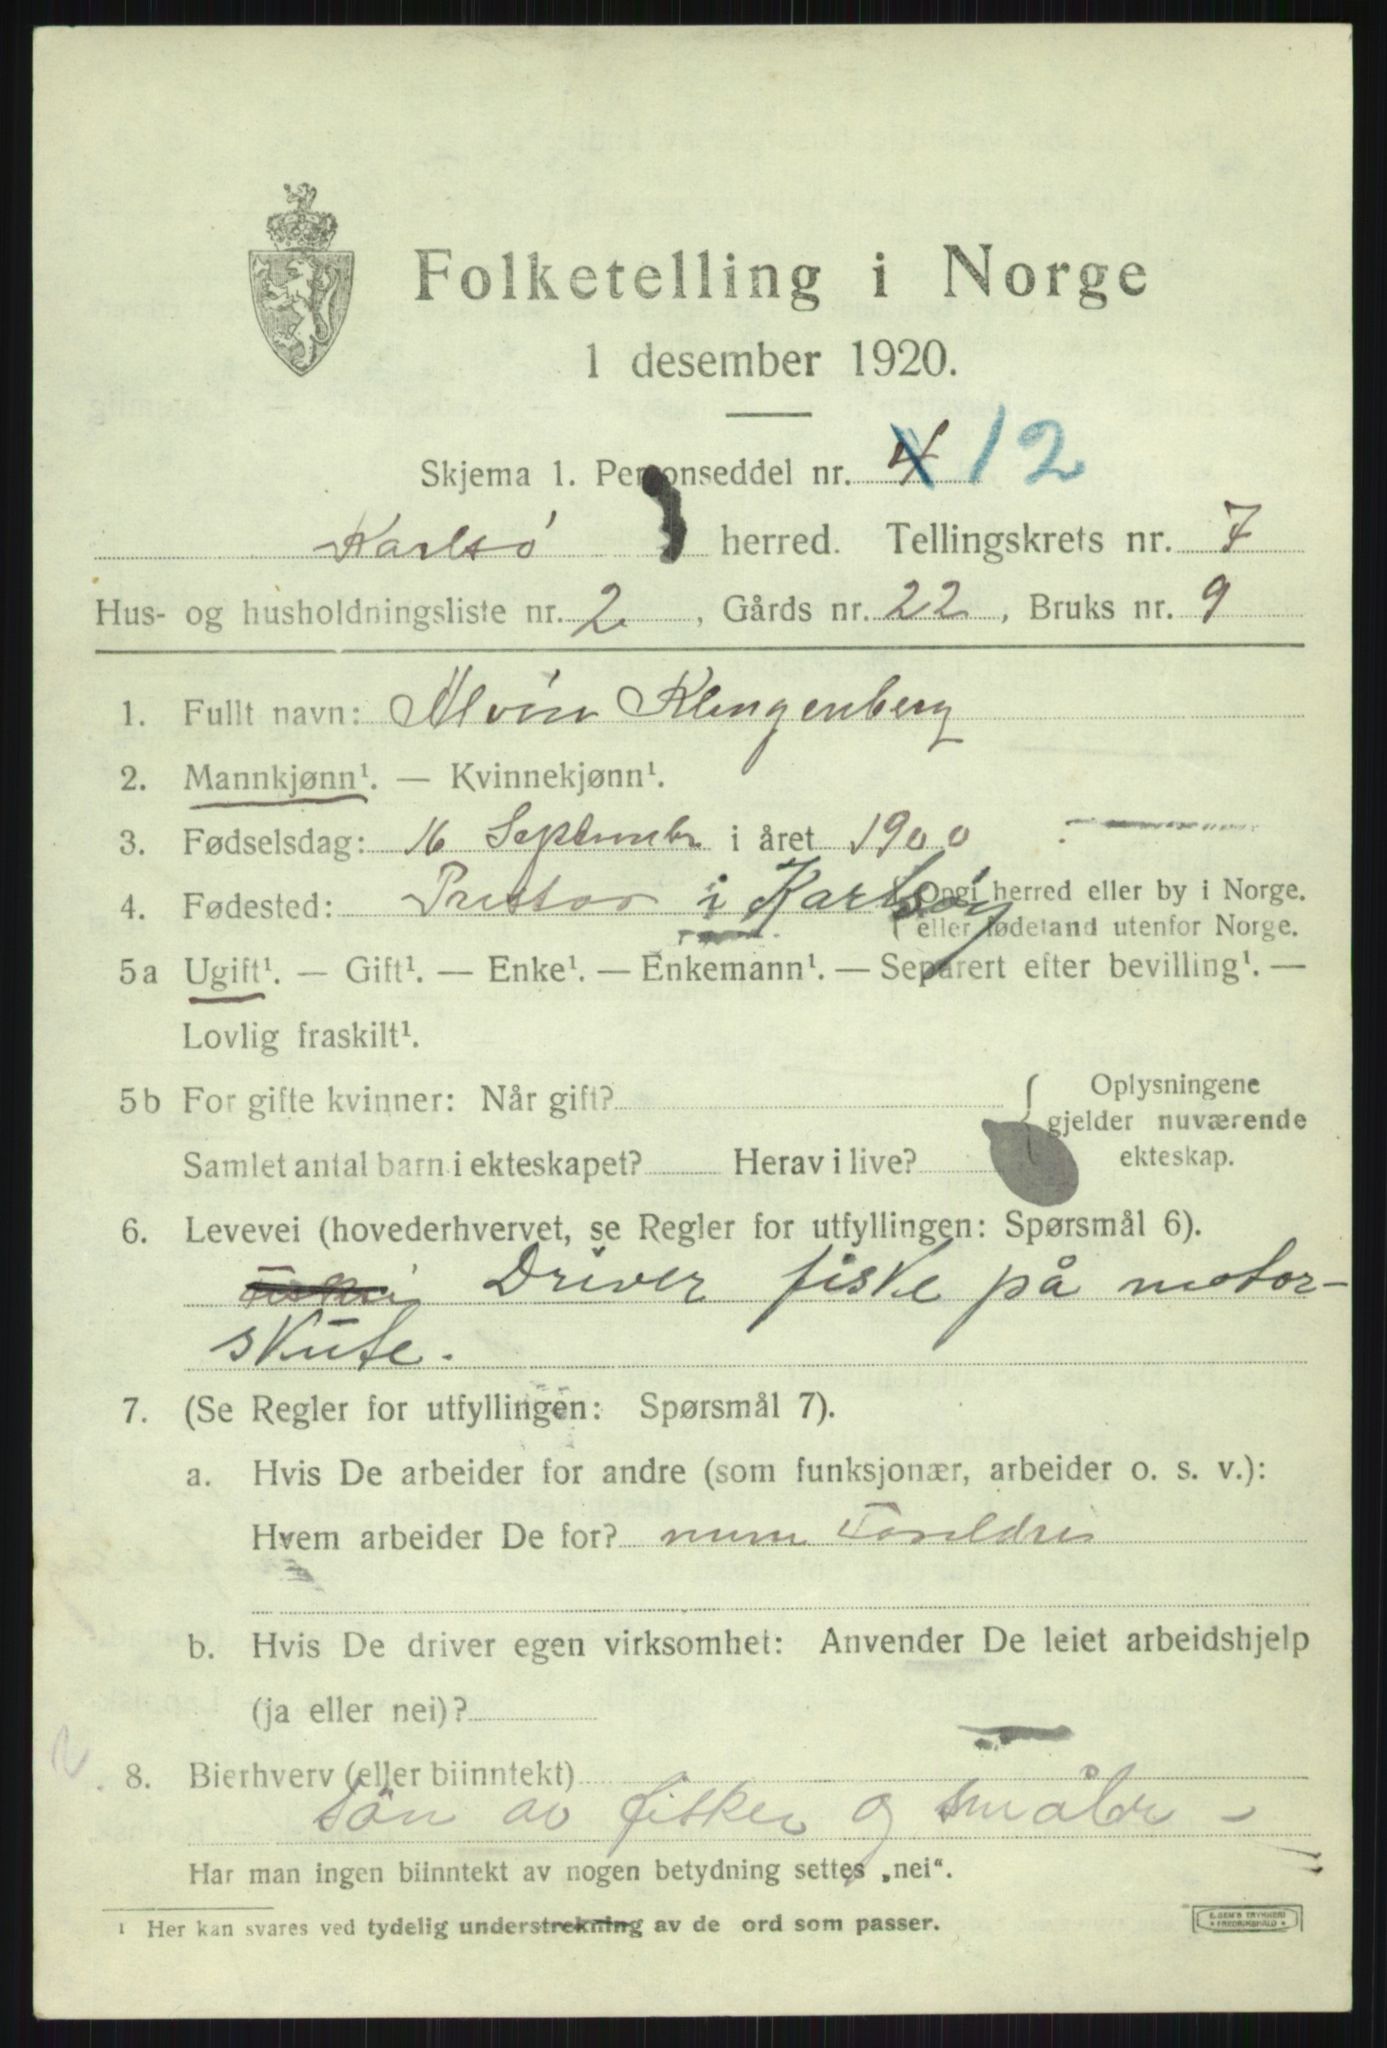 Folketelling i Norge
1 desember 1920.
Skjema 1. Personseddel nr. 4 12
Karlsö herred. Tellingskrets nr. 7
Hus- og husholdningsliste nr. 2, Gårds nr. 22, Bruks nr. 9
1. Fullt navn: Alvin Klingenberg
2. Mannkjønn¹. — Kvinnekjønn¹.
3. Fødselsdag: 16 September i året 1900
4. Fødested: i Karlsöy (Opgi herred eller by i Norge.
eller fødeland utenfor Norge.
5a Ugift¹. — Gift¹. — Enke¹. — Enkemann¹. — Separert efter bevilling¹. —
Lovlig fraskilt¹.
5b For gifte kvinner: Når gift? { Oplysningene
gjelder nuværende
Samlet antal barn i ekteskapet? Herav i live? ekteskap.
6. Levevei (hovederhvervet, se Regler for utfyllingen: Spørsmål 6).
Driver fiske på motor-
skute.
7. (Se Regler for utfyllingen: Spørsmål 7).
a. Hvis De arbeider for andre (som funksjonær, arbeider o. s. v.):
Hvem arbeider De for? mine Foreldre
b. Hvis De driver egen virksomhet: Anvender De leiet arbeidshjelp
(ja eller nei)?
8. Bierhverv (eller biinntekt)
Sön av fisker og småbr -
Har man ingen biinntekt av nogen betydning settes „nei“.
¹ Her kan svares ved tydelig understrekning av de ord som passer.